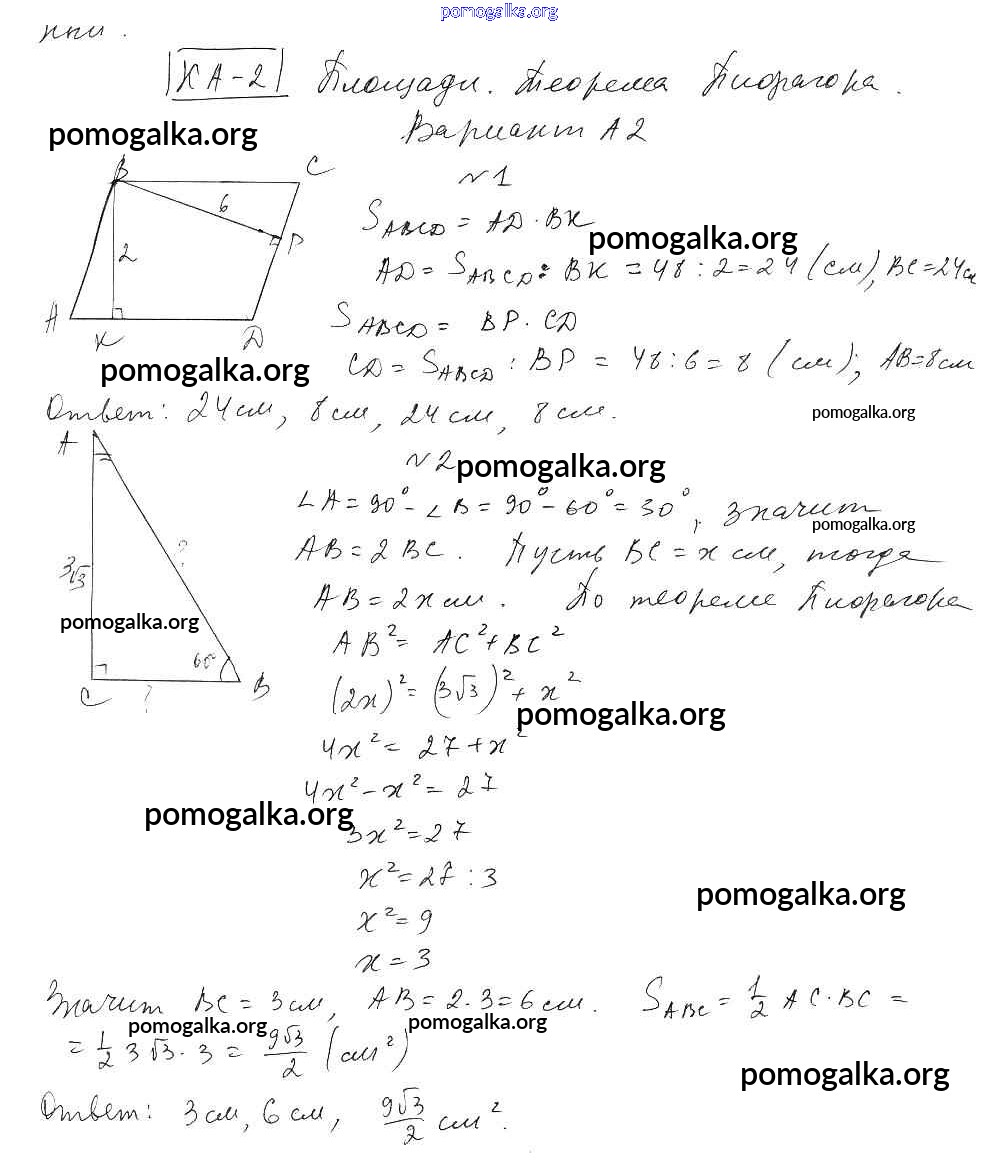 pomogalka.org
КА-2 Площади. Теорема Пифагора.
Вариант А2
pomogalka.org
B C
6
2
P
A K D
№1
S_ABCD = AD · BK
pomogalka.org
AD = S_ABCD : BK = 48 : 2 = 24 (см), BC = 24см
S_ABCD = BP · CD
CD = S_ABCD : BP = 48 : 6 = 8 (см); AB = 8см
pomogalka.org
Ответ: 24 см, 8 см, 24 см, 8 см.
pomogalka.org
№2
pomogalka.org
A
3√3
?
60°
C
?
B
∠A = 90° - ∠B = 90° - 60° = 30°, значит
pomogalka.org
AB = 2 BC. Пусть BC = x см, тогда
AB = 2x см. По теореме Пифагора
pomogalka.org
AB² = AC² + BC²
(2x)² = (3√3)² + x²
pomogalka.org
4x² = 27 + x²
4x² - x² = 27
pomogalka.org
3x² = 27
x² = 27 : 3
pomogalka.org
x² = 9
x = 3
Значит BC = 3 см, AB = 2·3 = 6 см. S_ABC = 1/2 AC · BC =
pomogalka.org pomogalka.org
= 1/2 3√3 · 3 = 9√3/2 (см²)
pomogalka.org
Ответ: 3 см, 6 см, 9√3/2 см².